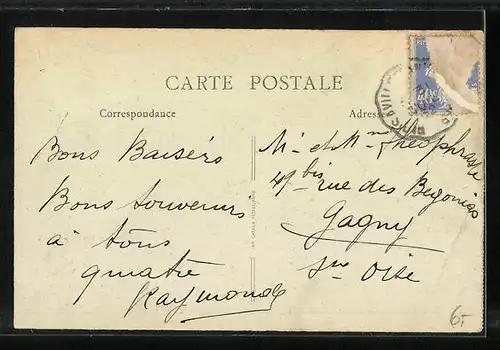 CARTE POSTALE
Correspondance
Adresse
Bons Baisers
Bons souvenirs
à tous
quatre
Raymonde
M. et Mme Théophraste
49 bis rue des Bégonias
Gagny
Sne Oise
6.-